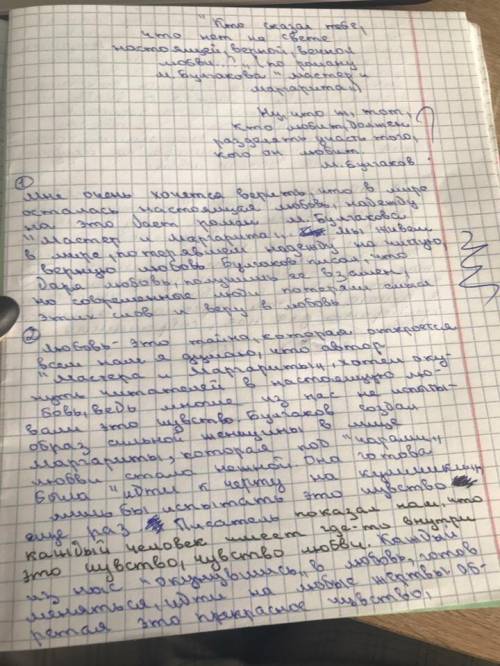 "Кто сказал тебе,
что нет на свете
настоящей, верной, вечной
любви..." (по роману
М. Булгакова "Мастер и
Маргарита")
Ну, что ж, тот,
кто любит, должен
разделять участь того,
кого он любит.
М. Булгаков.
1
Мне очень хочется верить, что в мире
осталась настоящая любовь, надежду
на это даёт роман М. Булгакова
"Мастер и Маргарита", мы живём
в мире, потерявшем надежду на
верную любовь. Булгаков писал, что
даря любовь, получишь её взамен,
но современные люди потеряли смысл
этих слов и веру в любовь
2
Любовь - это тайна, которая откроется
всем нам я думаю, что автор
"Мастера и Маргариты", хотел оку-
нуть читателей в настоящую лю-
бовь, ведь многие из нас не испыты-
вали это чувство. Булгаков создал
образ сильной женщины в лице
Маргариты, которая под "чарами"
любви стала нежной. Она готова
была "идти к черту на кулички",
лишь бы испытать это чувство
ещё раз Писатель показал нам, что
каждый человек имеет где-то внутри
это чувство, чувство любви. Каждый
из нас "окунувшись" в любовь, готов
меняться, идти на любые жертвы об-
ретая это прекрасное чувство,